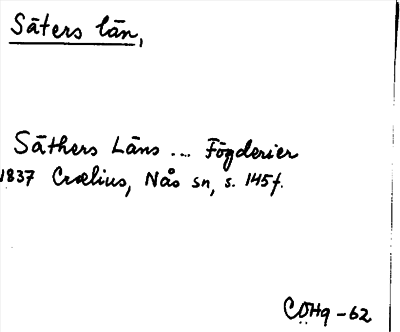 Säters län,
Säthers Läns ... Fögderier
1837 Crælius, Nås sn, s. 145f.
CÖHq -62